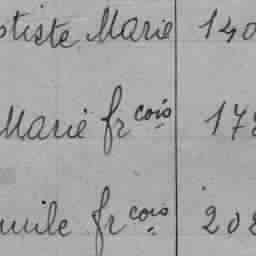 ptiste Marie 140
Marie frcois 178
mile frcois 208